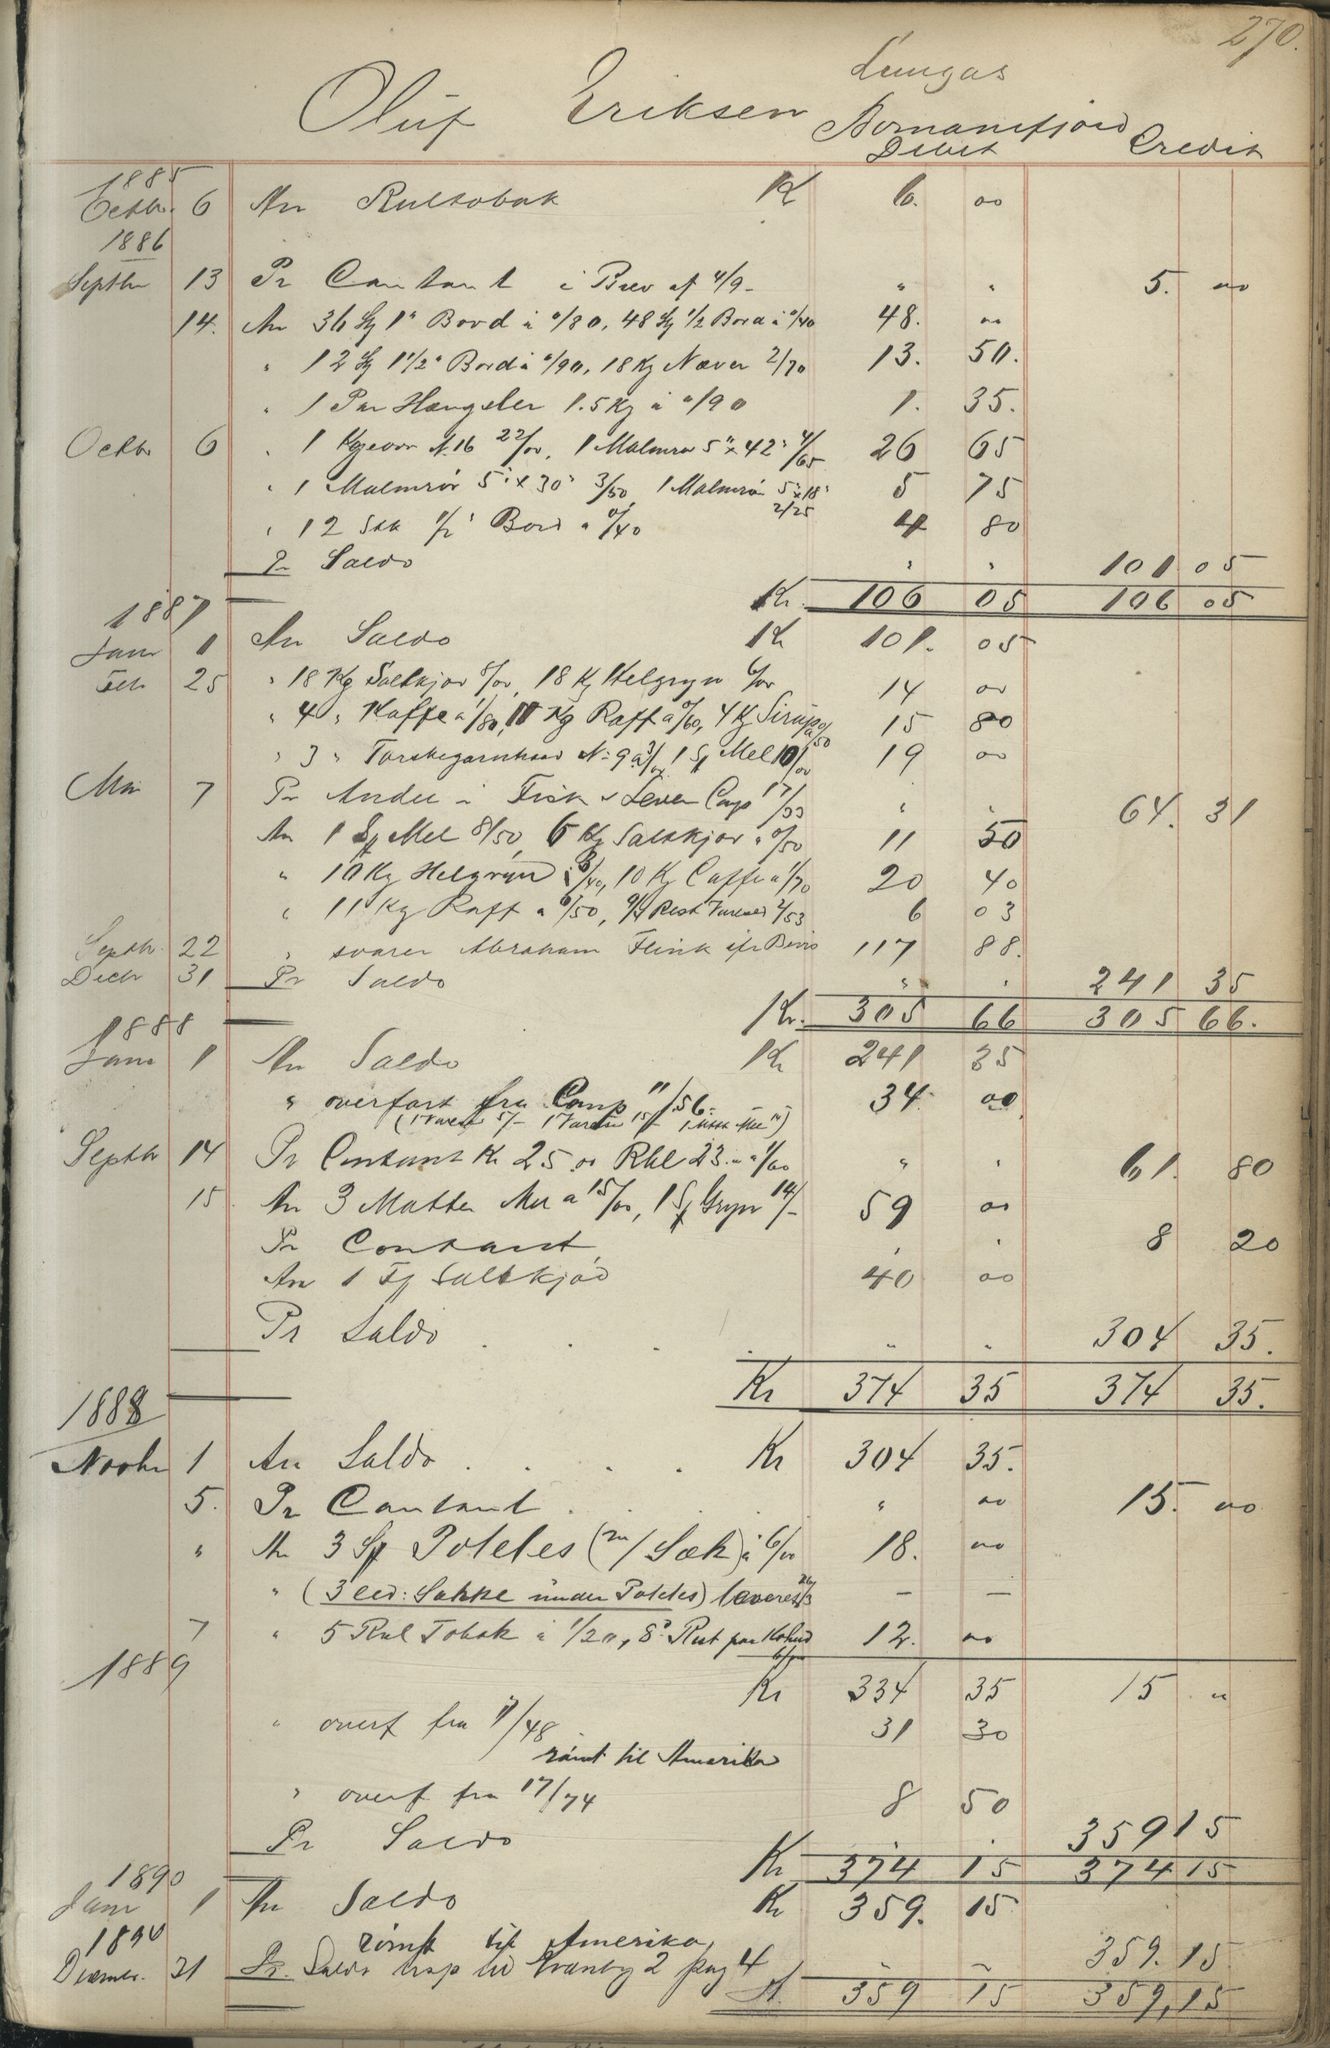 270.
Lungas
Oluf Eriksen Bomansfjord
Debet Credit
1885
Octbr. 6 An Rultobak K 6. 00
1886
Septbr 13 Pr Contant i Brev af 4/9 - " " 5. 00
14. An 36 1" Bord a "/80, 48 1/2 Bord a "/40 48. 00
" 12 1 1/2" Bord a "/90, 18 Kg Næver 2/70 13. 50.
" 1 Par Hængsler 1.5 Kg a "/90 1. 35.
Octbr 6 " 1 N. 16 22/00, 1 Malmrør 5" x 42" 4/65 26 65
" 1 Malmrør 5" x 30" 3/50 1 Malmrør 5" x 18" 2/25 5 75
" 12 Stk 1/2" Bord a "/40 4 80
Pr Saldo " " 101 05
Kr. 106 05 106 05
1887
Janr 1 An Saldo K 101. 05
Feb 25 " 18 Kg Saltkjør 8/00, 18 Kg Helgryn 6/00 14 00
" 4 " Kaffe a 1/80, 11 Kg Raff a 0/60, 4 Kg Sirup a 0/50 15 80
" 3 " N: 9 a 3/00 1 Mel 10/00 19 00
Mai 7 Pr Andel i Fisk & Lever Comp 17/33 " " 64. 31
An 1 Mel 8/50, 6 Kg Saltkjør a 0/50 11 50
" 10 Kg Helgryn 3/40, 10 Kg Caffe a 1/70 20 40
" 11 Kg Raff a 0/50, Rest 2/53 6 03
Septbr. 22 " svarer Abraham Flink 117 88.
Decbr 31 Pr Saldo " " 241 35
Kr. 305 66 305 66.
1888
Janr 1 An Saldo K 241 35
" overført fra Comp "/56. 34 00
Septbr 14 Pr Contant Kr 25 00 Rbl 23 - a 1/60 " " 61. 80
15. An 3 Matter Mel a 15/00, 1 Gryn 14/- 59 00
Pr Contant " " 8 20
An 1 Saltkjød 40 00
Pr Saldo . . . " " 304 35.
Kr 374 35 374 35.
1888
Novbr 1 An Saldo . . . . Kr 304 35.
5. Pr Contant . . . " 00 15. 00
" An 3 Poteter (m/Sæk) a 6/00 18. 00
" (3 Sække under Poteter) leveres - -
7 " 5 Rul Tobak a 1/20, 8" Rest paa Kohud 6/00 12. 00
1889
Kr 334 35 15 "
" overf fra "/48 31 30
rømt til Amerika
" overf fra 17/74 8 50
Pr Saldo " " 359 15
Kr 374 15 374 15
1890
Janr 1 An Saldo Kr 359. 15
1890
rømt til Amerika
Decembr. 31 Pr. Saldo trsp til 2 pag 4 " " 359. 15
Kr. 359 15 359, 15